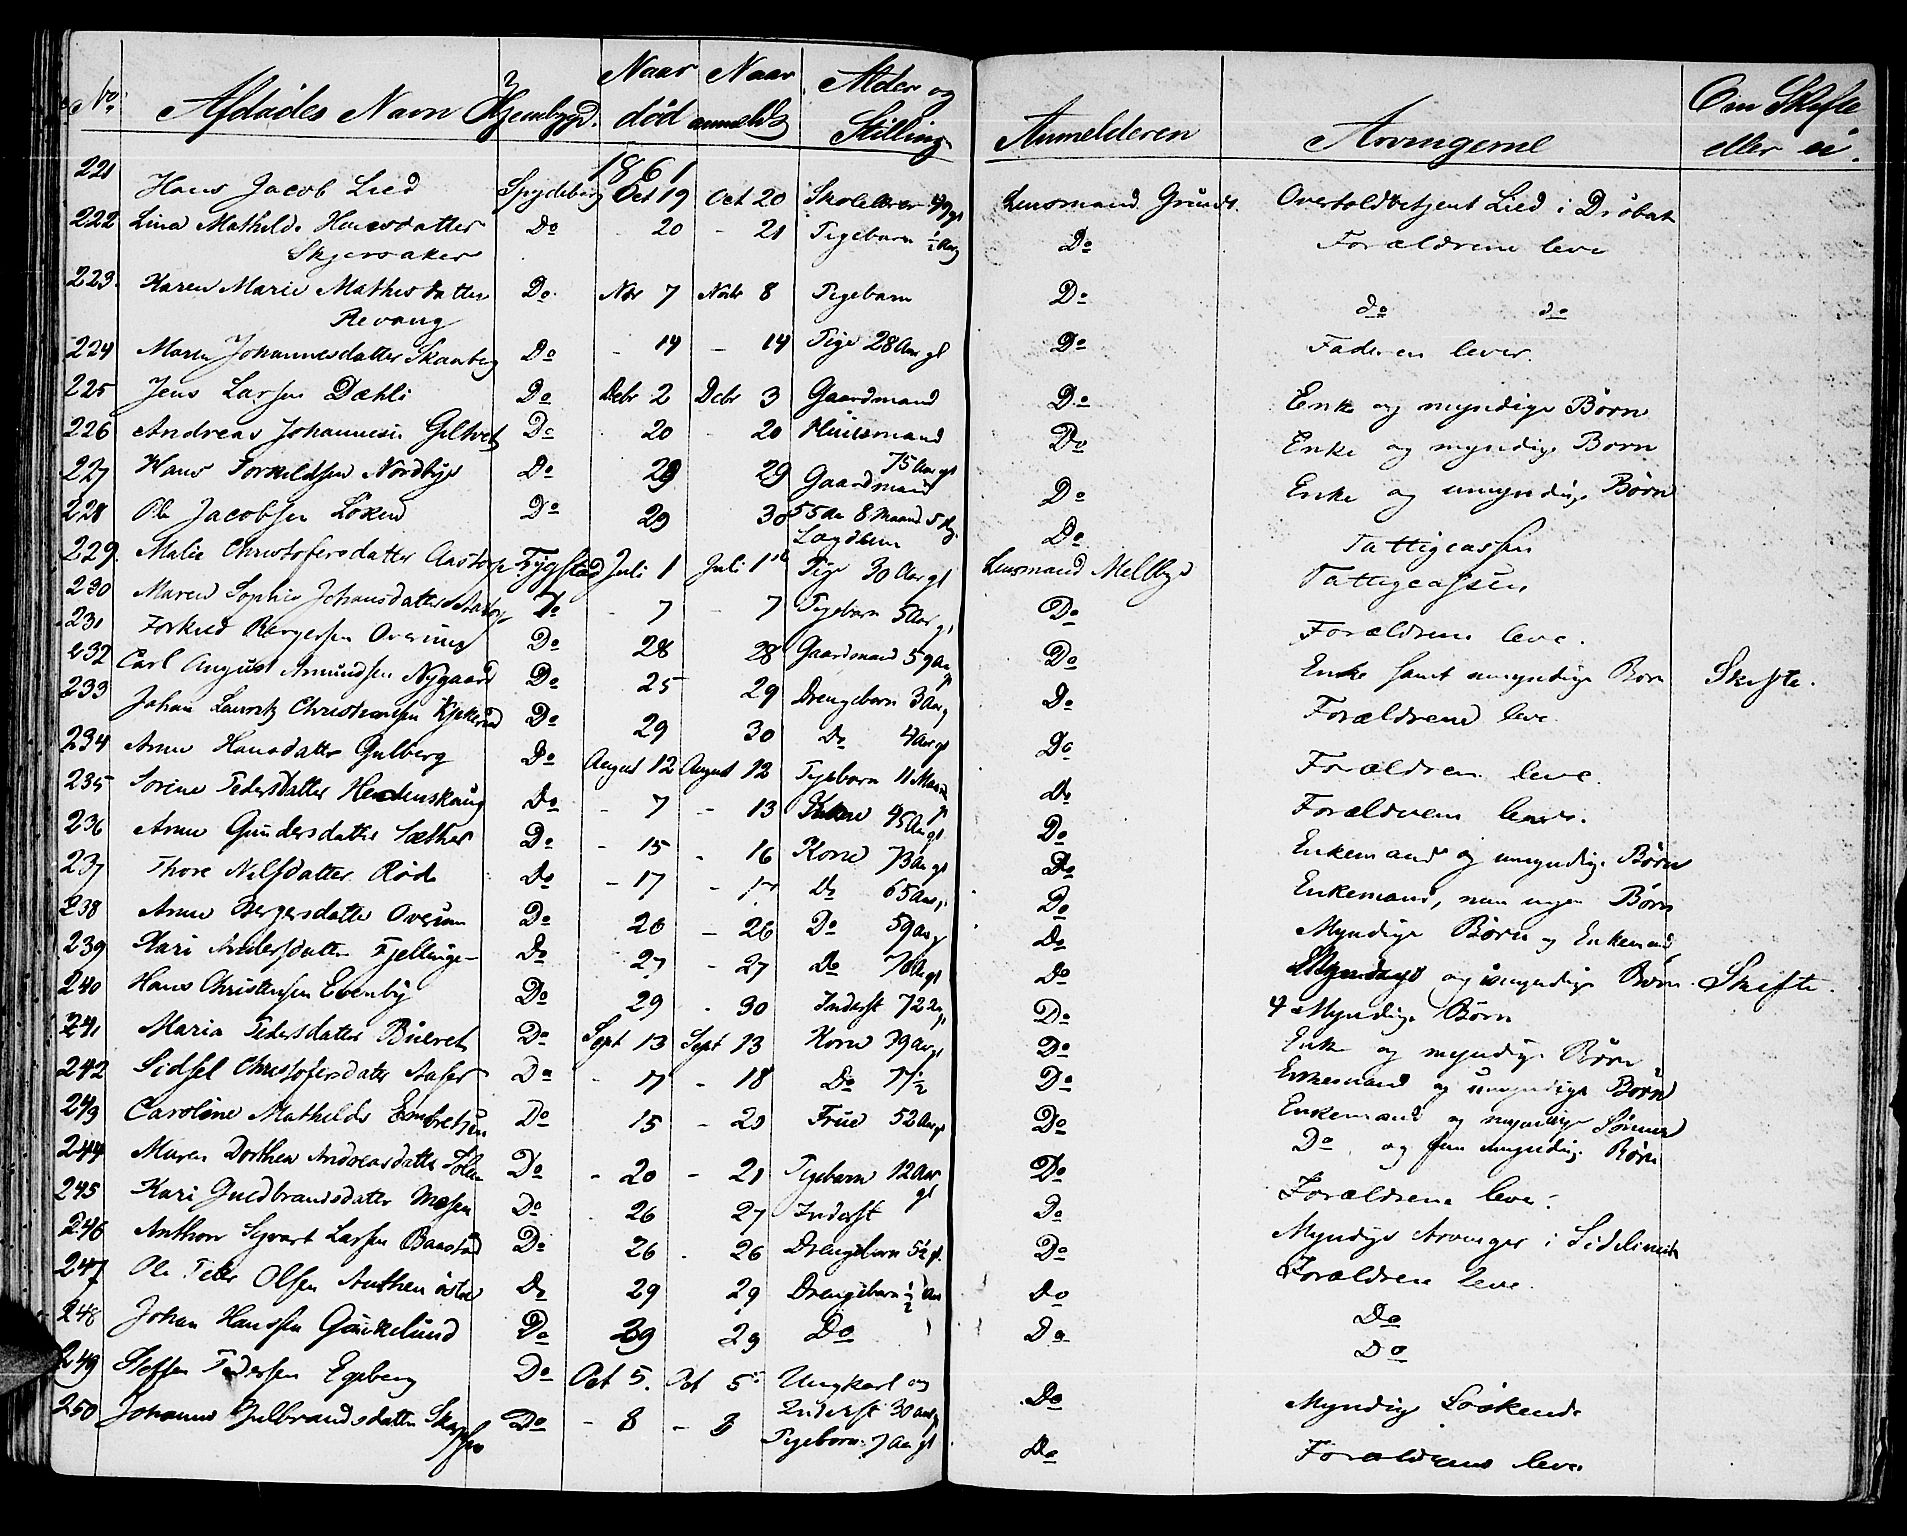 No. Afdødes Navn Hjembygd. Naar død Naar anmeldt Alder og Stilling. Anmelderen Arvingerne Om Skifte eller ei.
1861
221 Hans Jacob Lied Spydeberg Oct 19 Oct 20 Skolelærer 49 gl Lensmand Grundt. Overtoldbetjent Lied i Drøbak
222 Lina Mathilde Hansdatter Do - 20 - 21 Pigebarn ½ Aar Do Forældrene leve
Skjervaker
223. Karen Marie Mathisdatter Do Nov 7 Novbr 8 Pigebarn Do do do
Revaug
224 Maren Johannesdatter Skanbeg Do - 14 - 14 Pige 28 Aar gl Do Faderen lever.
225 Jens Larsen Dæhli Do Decbr 2 Decbr 3 Gaardmand Do Enke og myndige Børn
226 Andreas Johannesen Do 20 - 20 Huusmand Do Enke og myndige Børn
75 Aar gl
227 Hans Torkildsen Nordbye Do 29 29 Gaardmand Do Enke og umyndige Børn
228 Ole Jacobsen Løken Do 29 30 55 Aar 8 Maaned 5 Dg. Do Fattigcassen
Lægdslem
229. Malie Christofersdatter Trygstad Juli 1 Juli 1 Pige 30 Aar gl Lensmand Mellbye Fattigcassen
230 Maren Sophie Johansdatter Do - 7 - 7 Pigebarn 5 Aar gl Do Forældrene leve.
231 Torkild Bergersen Overum Do 28 28 Gaardmand 59 Aar gl Do Enke samt umyndige Børn Skifte.
232 Carl August Amundsen Nygaard Do 25 29 Drengebarn 3 Aar g Do Forældrene leve.
233 Johan Lauritz Christensen Do 29 30 Do 4 Aar gl Do Forældrene leve.
234 Anne Hansdatter Gulberg Do August 12 August 12 Pigebarn 11 Do Forældrene leve.
235 Sorine Pedersdatter Hendenskaug Do - 7 - 13 45 Aar gl Do Enkemand og umyndige Børn
236 Anne Gundersdatter Sæther Do - 15 - 16 Kone 73 Aar gl Do Enkemand, men ingen Børn
237 Thore Nilsdatter Røds Do - 17 - 17 Do 65 Aar Do Myndige Børn og Enkemand
238 Anne Bergersdatter Overum Do 26 - 26 Do 59 Aar Do Myndige og umyndige Børn Skifte.
239 Kari Andersdatter Fjellinge Do - 27 - 27 Do Do 4 Myndige Børn
240 Hans Christensen Evenby Do 29 - 30 Inderst 72 Do Enke og myndige Børn
241 Maria Pedersdatter Do Sept 13 Sept 13 Kone 39 Aar gl Do Enkemand og umyndige Børn
242 Sidsel Christofersdatter Do - 17 - 18 Do 77½ Do Enkemand og myndige Sønner
243 Caroline Mathilde Embretsen Do 15 - 20 Frue 52 Aar gl Do Do og fem umyndig Børn
244 Maren Dorthea Andreasdatter Do - 20 - 21 Pigebarn 12 Aar gl Do Forældrene leve.
245 Kari Guldbrandsdatter Mosen Do 26 27 Inderst Do Myndige Arvinger i Sidelinie
246 Anthon Sigvart Larsen Baastad Do 26 - 26 Drengebarn 5½ gl. Do Forældrene leve.
247 Ole Peter Olsen Do 29 29 Drengebarn ½ Aar Do Do
248 Johan Hanssen Do 29 29 Do Do Do
249 Steffen Pedersen Egeberg Do Oct 5. Oct 5 Ungkarl og Do Myndig Søskende
Inderst 30 Aar g
250 Johanne Gulbrandsdatter Do - 8 - 8 Pigebarn 7 Aar gl Do Forældrene leve